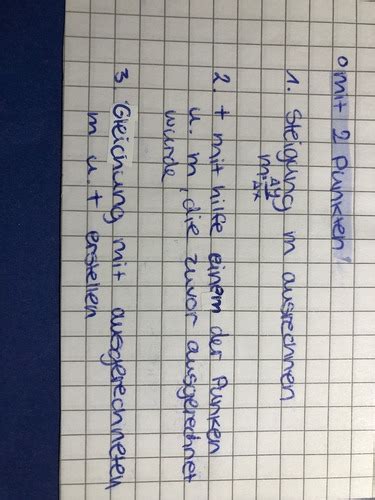 o mit 2 Punkten!
1. Steigung m ausrechnen
m = Δy/Δx
2. t mit hilfe einem der Punken
u. m, die zuvor ausgerechnet
wurde
3. Gleichung mit ausgerechneten
m u. t erstellen